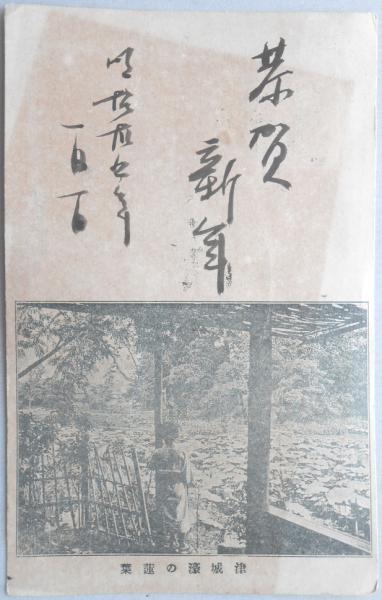 恭賀
新年
明治四拾四年
一月一日
津城濠の蓮葉